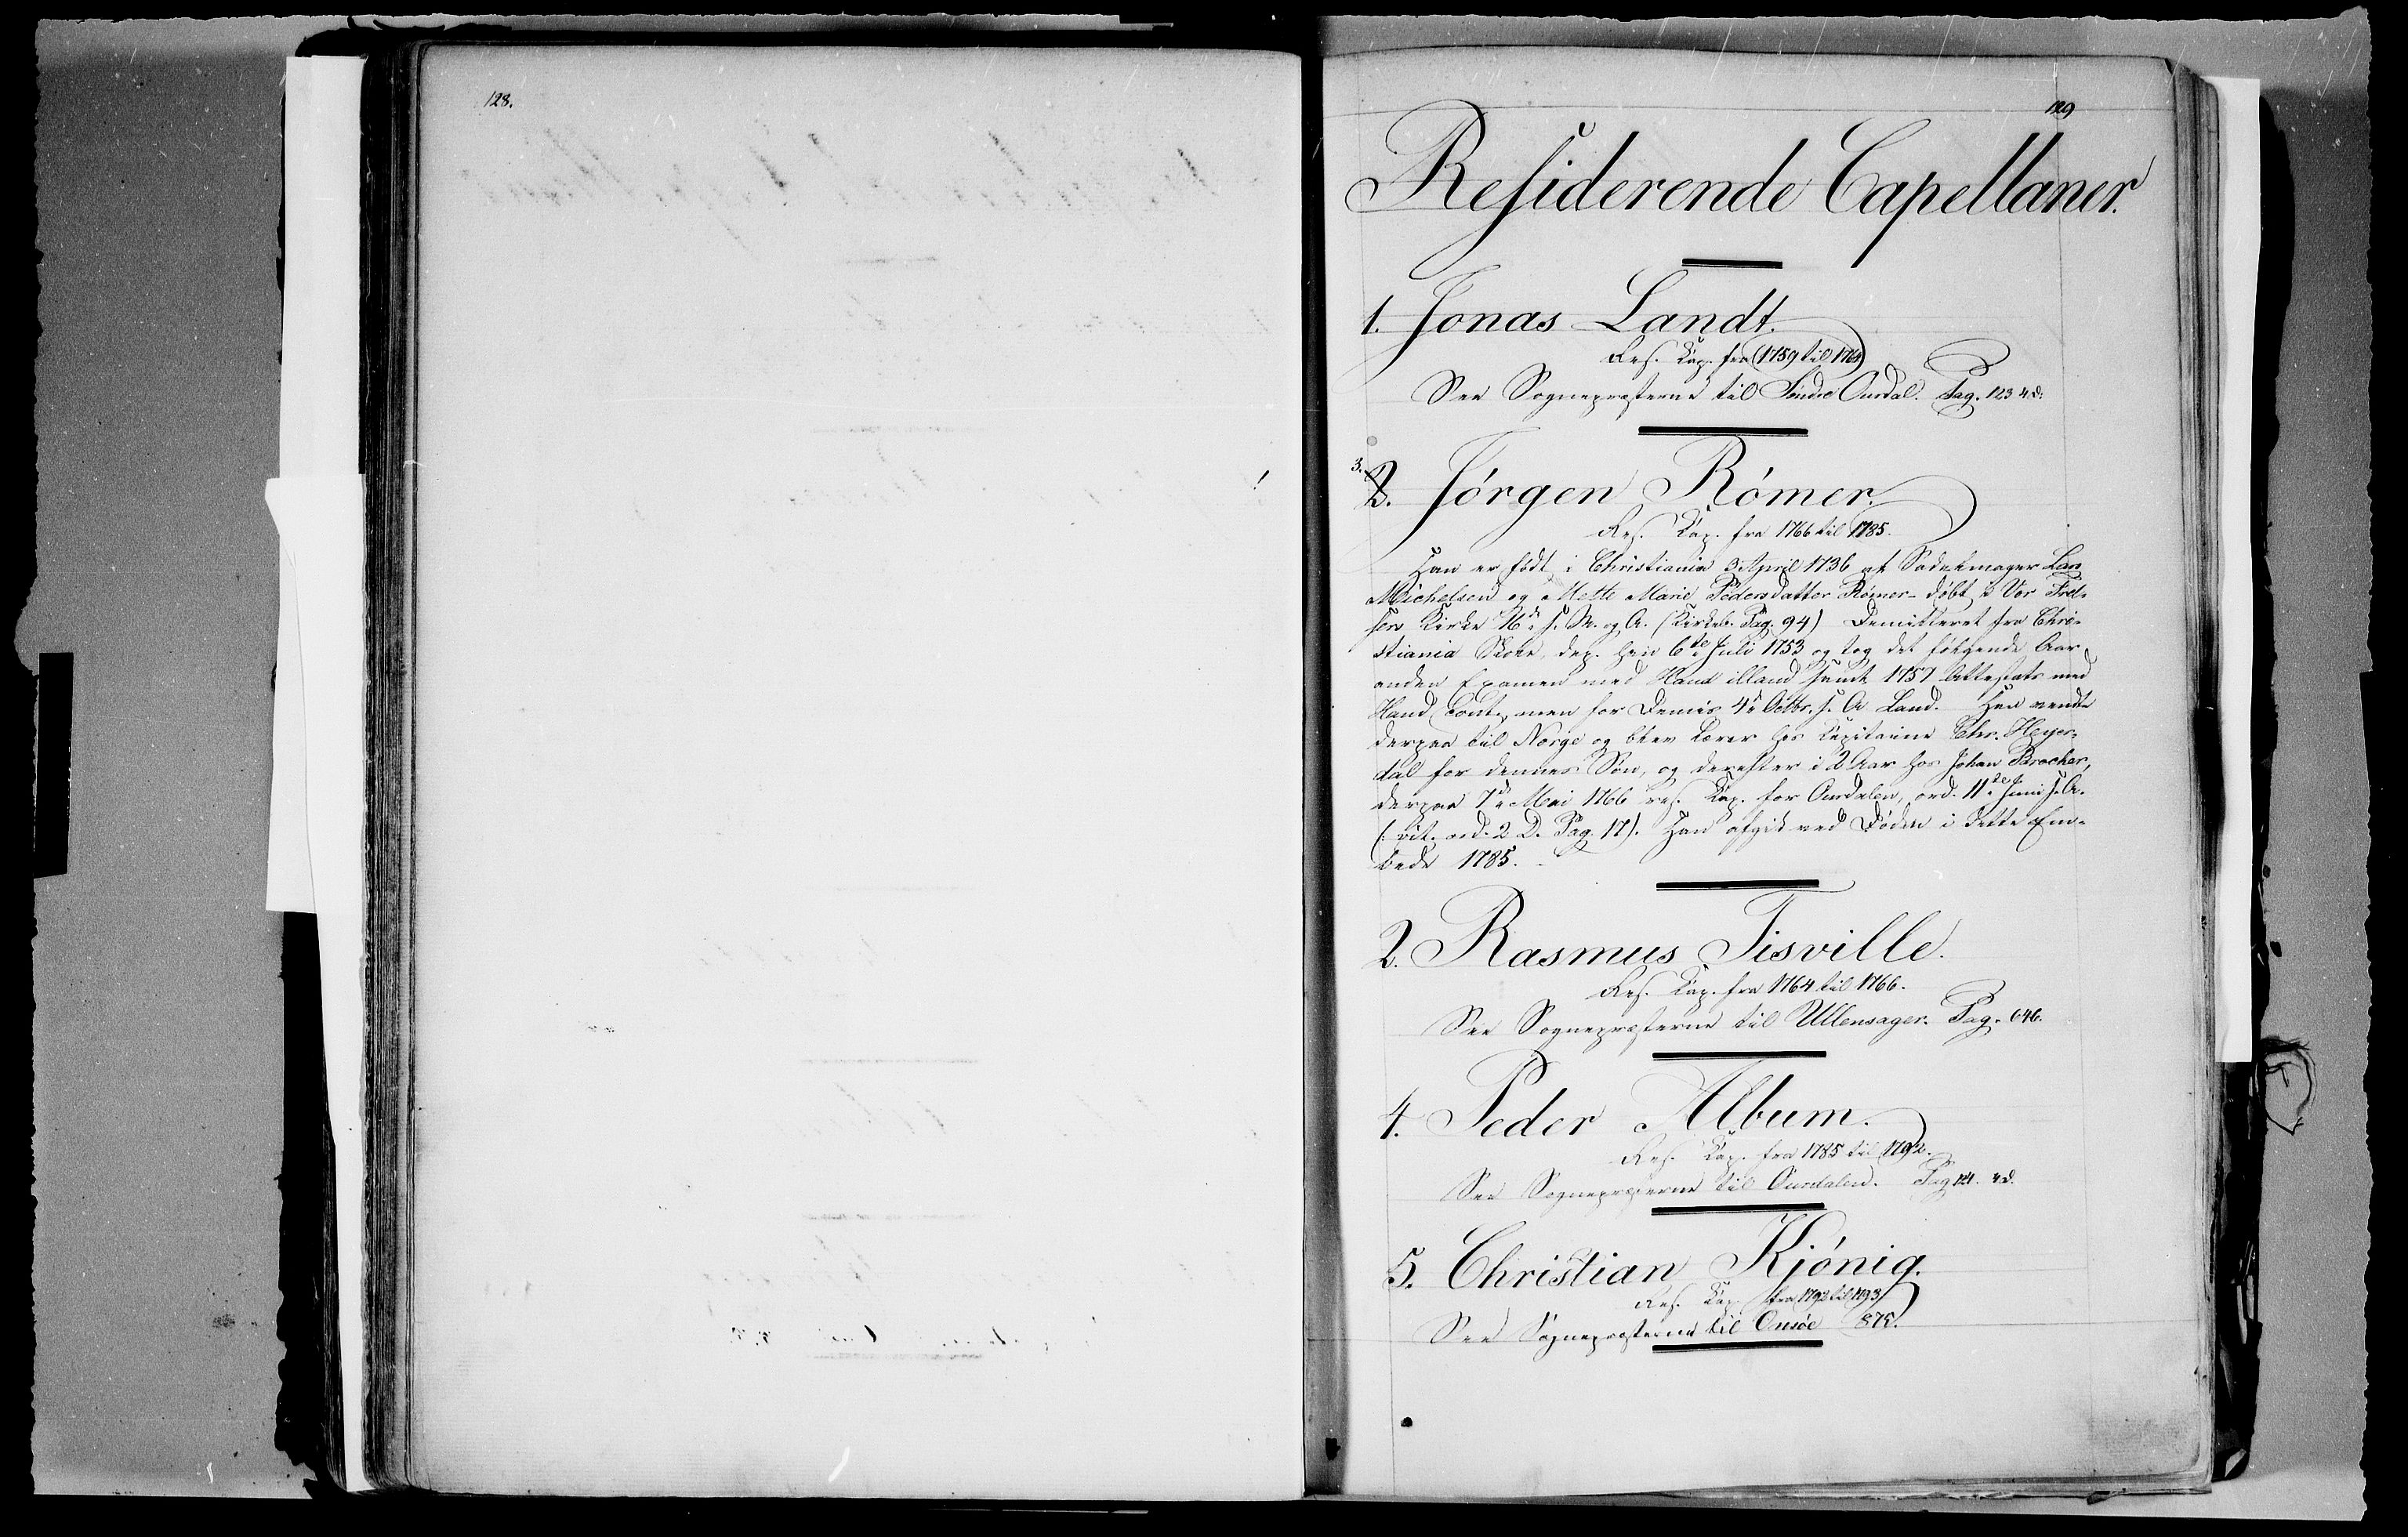 128.
129
Residerende Capellaner.
1. Jonas Landt.
Res. Kap. fra (1759 til 1764)
See Sognepræsterne til Søndre Ourdal. Pag. 123 4 d.
3.
2. Jørgen Rømer.
Res. Kap. fra 1766 til 1785.
Han er født i Christiania 3 April 1736 af Sadelmager Lars
Michelsen og Mette Marie Pedersdatter Rømer - døbt i Vor Frel-
sers Kirke 16de s. M. og A. (Kirkeb. Pag. 94) Demitteret fra Chri-
stiania Skole, dep. han 6te Juli 1753 og tog det følgende Aar
anden Examen med Haud illaud samt 1757 Attestats med
Haud Cont., men for Dimis 4de Octbr. s. A. Laud. Han vendte
derpaa til Norge og blev Lærer hos Kapitaine Chr. Heyer-
dal for dennes Søn, og derefter i 2 Aar hos Johan Brocher,
derpaa 7de Mai 1766 res. Kap. for Ourdalen, ord. 11te Juni s. A.
(: vit. ord. 2 D. Pag. 17). Han afgik ved Døden i dette Em-
bede 1785.
2. Rasmus Tisville.
Res. Kap. fra 1764 til 1766.
See Sognepræsterne til Ullensager. Pag. 646.
4. Peder Album.
Res. Kap. fra 1785 til 1792.
See Sognepræsterne til Ourdalen. Pag 124. 4 d.
5. Christian Kjønig.
Res. Kap. fra 1792 til 1793
See Sognepræsterne til Onsøe 875.